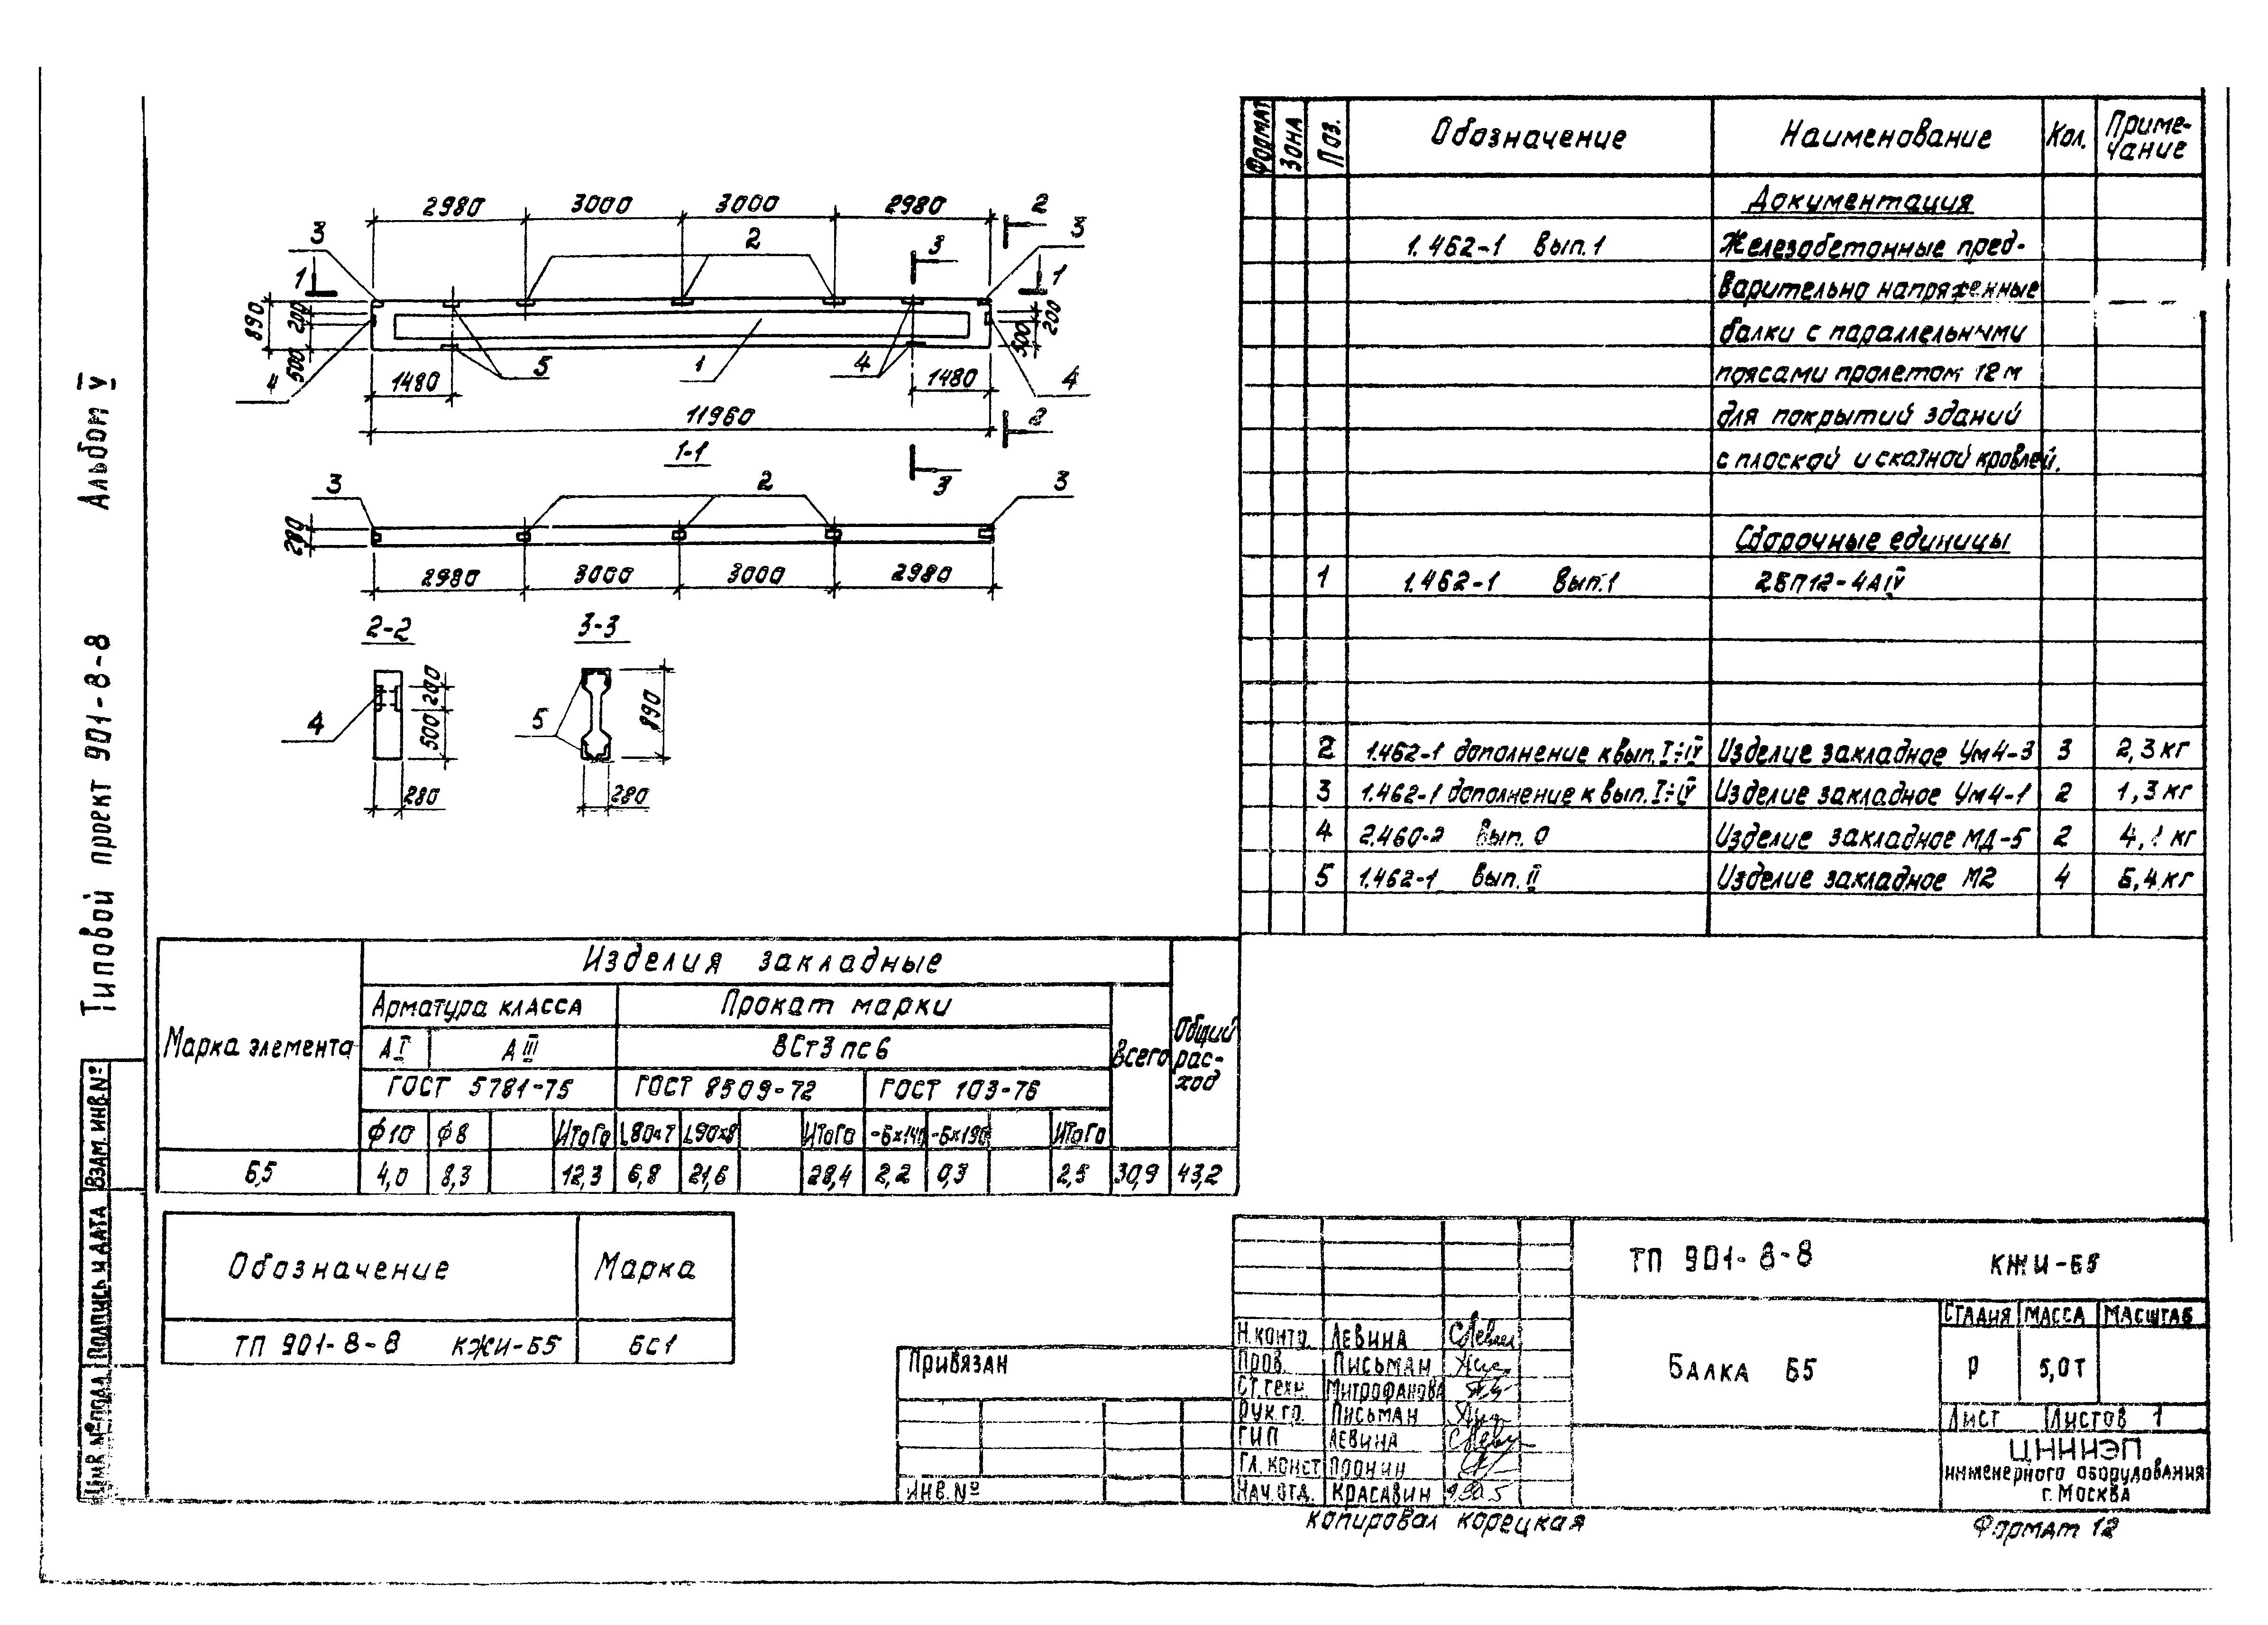 Типовой проект 901-8-8 Альбом V
2980 3000 3000 2980
3 2 3 2 3
1 1
890 200 500 200 500
4 5 1 4 4
1480 1480
11960
2
1-1
3
3 2 3
280
2980 3000 3000 2980
2-2 3-3
4 200 500 280
5 890 280
ФОРМАТ ЗОНА Поз. Обозначение Наименование Кол. Приме-
чание
Документация
1.462-1 Вып.1 Железобетонные пред-
варительно напряженные
балки с параллельными
поясами пролетом 12 м
для покрытий зданий
с плоской и скатной кровлей.
Сборочные единицы
1 1.462-1 Вып.1 2БП12-4АIV
2 1.462-1 дополнение к вып. I÷IV Изделие закладное Ум4-3 3 2,3 кг
3 1.462-1 дополнение к вып. I÷IV Изделие закладное Ум4-1 2 1,3 кг
4 2.460-2 Вып. 0 Изделие закладное МД-5 2 кг
5 1.462-1 Вып. II Изделие закладное М2 4 6,4 кг
Марка элемента Изделия закладные Общий
рас-
ход
Арматура класса Прокат марки Всего
АI АIII ВСт3 пс6
ГОСТ 5781-75 ГОСТ 8509-72 ГОСТ 103-76
ф10 ф8 Итого L80х7 L90х8 Итого -6х140 -6х190 Итого
Б5 4,0 8,3 12,3 6,8 21,6 28,4 2,2 0,3 2,5 30,9 43,2
Обозначение Марка
ТП 901-8-8 КЖИ-Б5 БС1
ВЗАМ. ИНВ.№
ПОДПИСЬ И ДАТА
ИНВ. №ПОДЛ.
Привязан
ИНВ. №
ТП 901-8-8 КЖИ-Б5
Н.контр. ЛЕВИНА
Пров. ПИСЬМАН
Ст.техн. МИТРОФАНОВА
Рук.гр. ПИСЬМАН
ГИП ЛЕВИНА
Гл. конст ПРОНИН
Нач.отд. КРАСАВИН
БАЛКА Б5
СТАДИЯ МАССА МАСШТАБ
Р 5,0т
Лист Листов 1
ЦНИИЭП
инженерного оборудования
г. Москва
копировал Корецкая
Формат 12